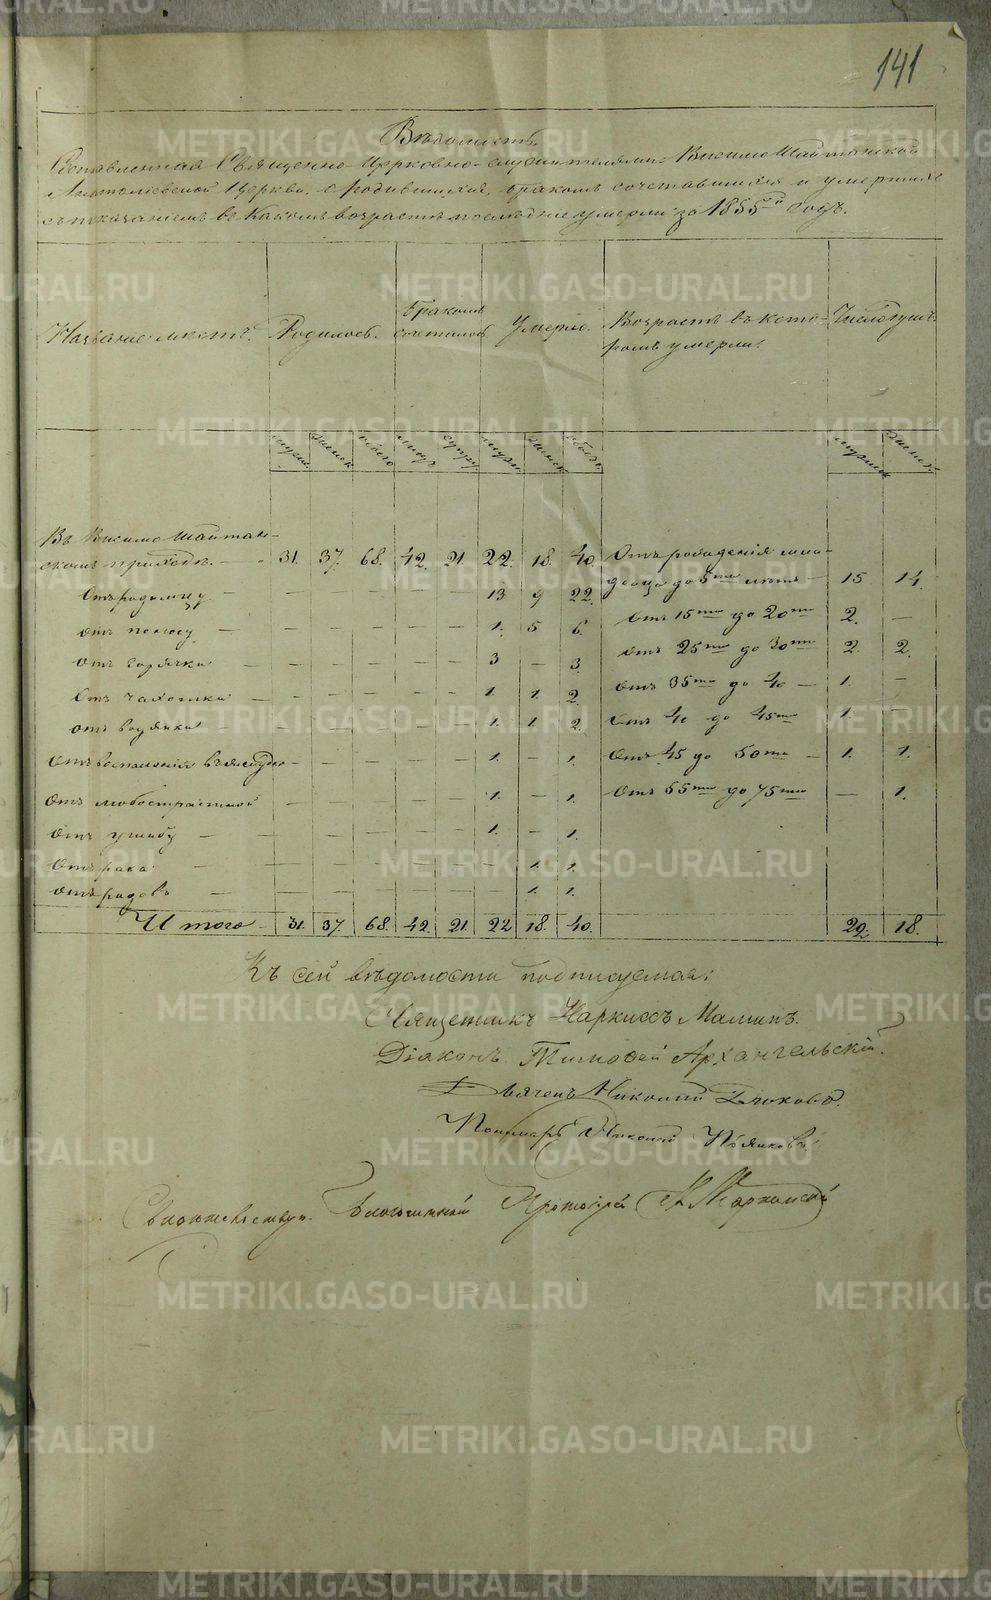 141
Вѣдомость,
Составленная Священно-Церковно-служителями Висимо Шайтанской
Анатоліевской Церкви, о родившихся, бракомъ сочетавшихся и умершихъ
съ показаніемъ въ какомъ возрастѣ послѣдніе умерли за 1855й годъ.
Названіе мѣстъ. Родилось. Бракомъ сочеталось Умерло. Возрастъ въ кото-ромъ умерли. Число душъ.
мужес. женск. всего мужес. женск. мужес. женск.
Въ Висимо Шайтан-
скомъ приходѣ. — 31. 37. 68. 42. 21. 22. 18. 40. Отъ рожденія мла-
денца до 5ти лѣтъ — 15 14.
Отъ родимцу — — — — — — 13 9 22.
Отъ 15ти до 20ти 2. —
отъ поносу — — — — — — 1. 5 6.
отъ 25ти до 30ти 2. 2.
отъ горячки — — — — — 3 — 3.
Отъ 35ти до 40 — 1. —
Отъ чахотки — — — — — — 1. 1. 2.
отъ водянки — — — — — 1. 1. 2. Отъ 40 до 45ти 1. —
Отъ воспаленія въ желудкѣ — — — — — 1. — 1. Отъ 45 до 50ти — 1. 1.
Отъ любострастной — — — — — 1. — 1. Отъ 65ти до 75ти — 1.
Отъ ушибу — — — — — — 1. — 1.
Отъ рака — — — — — — — 1. 1.
отъ родовъ — — — — — — — 1. 1.
Итого — 31. 37. 68. 42. 21. 22 18. 40. 22. 18.
Къ сей вѣдомости подписуемся:
Священникъ Наркиссъ Маминъ.
Діаконъ Тимофей Архангельскій.
Дьячекъ Николай Дюковъ.
Пономарь Николай Пьянковъ.
Свидѣтельствую. Благочинный Протоіерей
METRIKI.GASO-URAL.RU